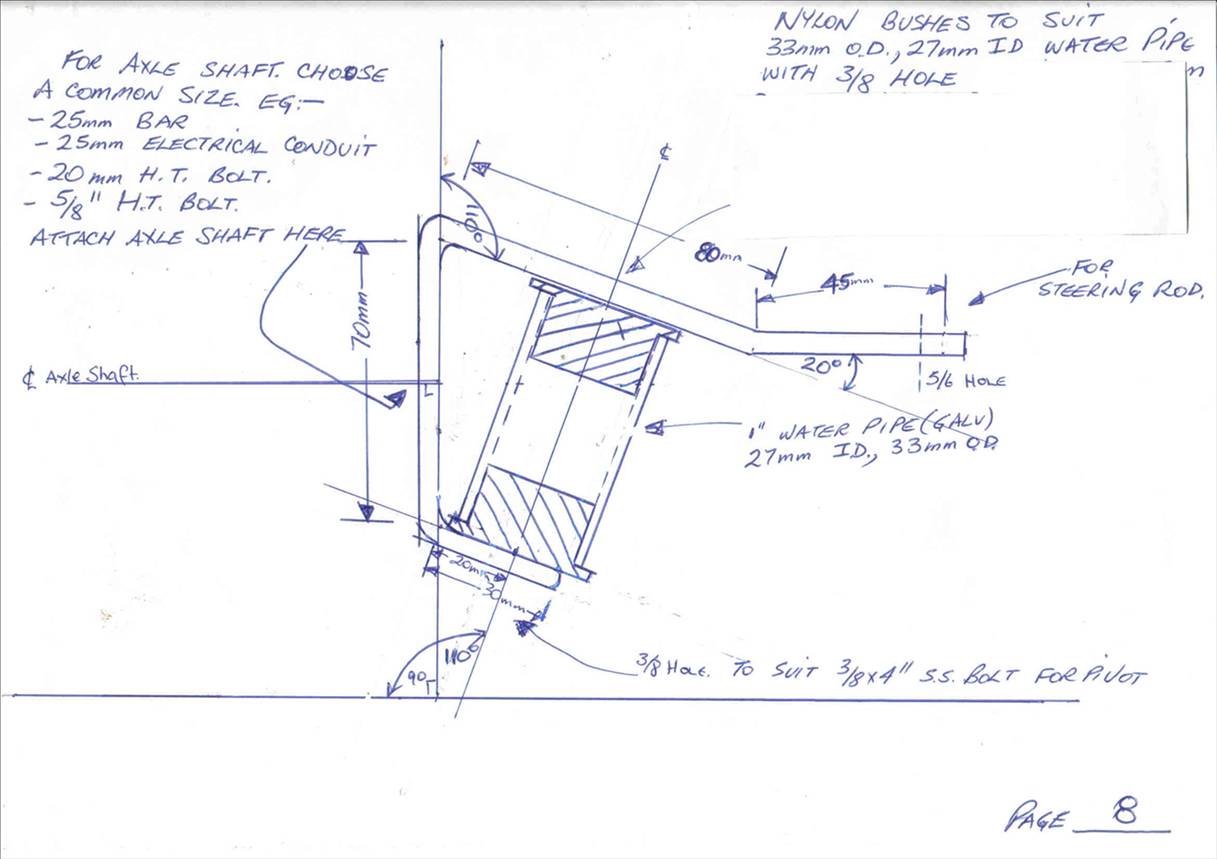 NYLON BUSHES TO SUIT
33mm O.D., 27mm ID WATER PIPE
WITH 3/8 HOLE
FOR AXLE SHAFT. CHOOSE
A COMMON SIZE. EG:-
- 25mm BAR
- 25mm ELECTRICAL CONDUIT
- 20mm H.T. BOLT.
- 5/8" H.T. BOLT.
ATTACH AXLE SHAFT HERE
℄
110°
80mm
45mm
FOR
STEERING ROD.
70mm
20°
5/6 HOLE
℄ Axle Shaft.
1" WATER PIPE (GALV)
27mm ID., 33mm O.D.
20mm
30mm
110°
90°
3/8 HOLE. TO SUIT 3/8x4" S.S. BOLT FOR PIVOT
PAGE 8